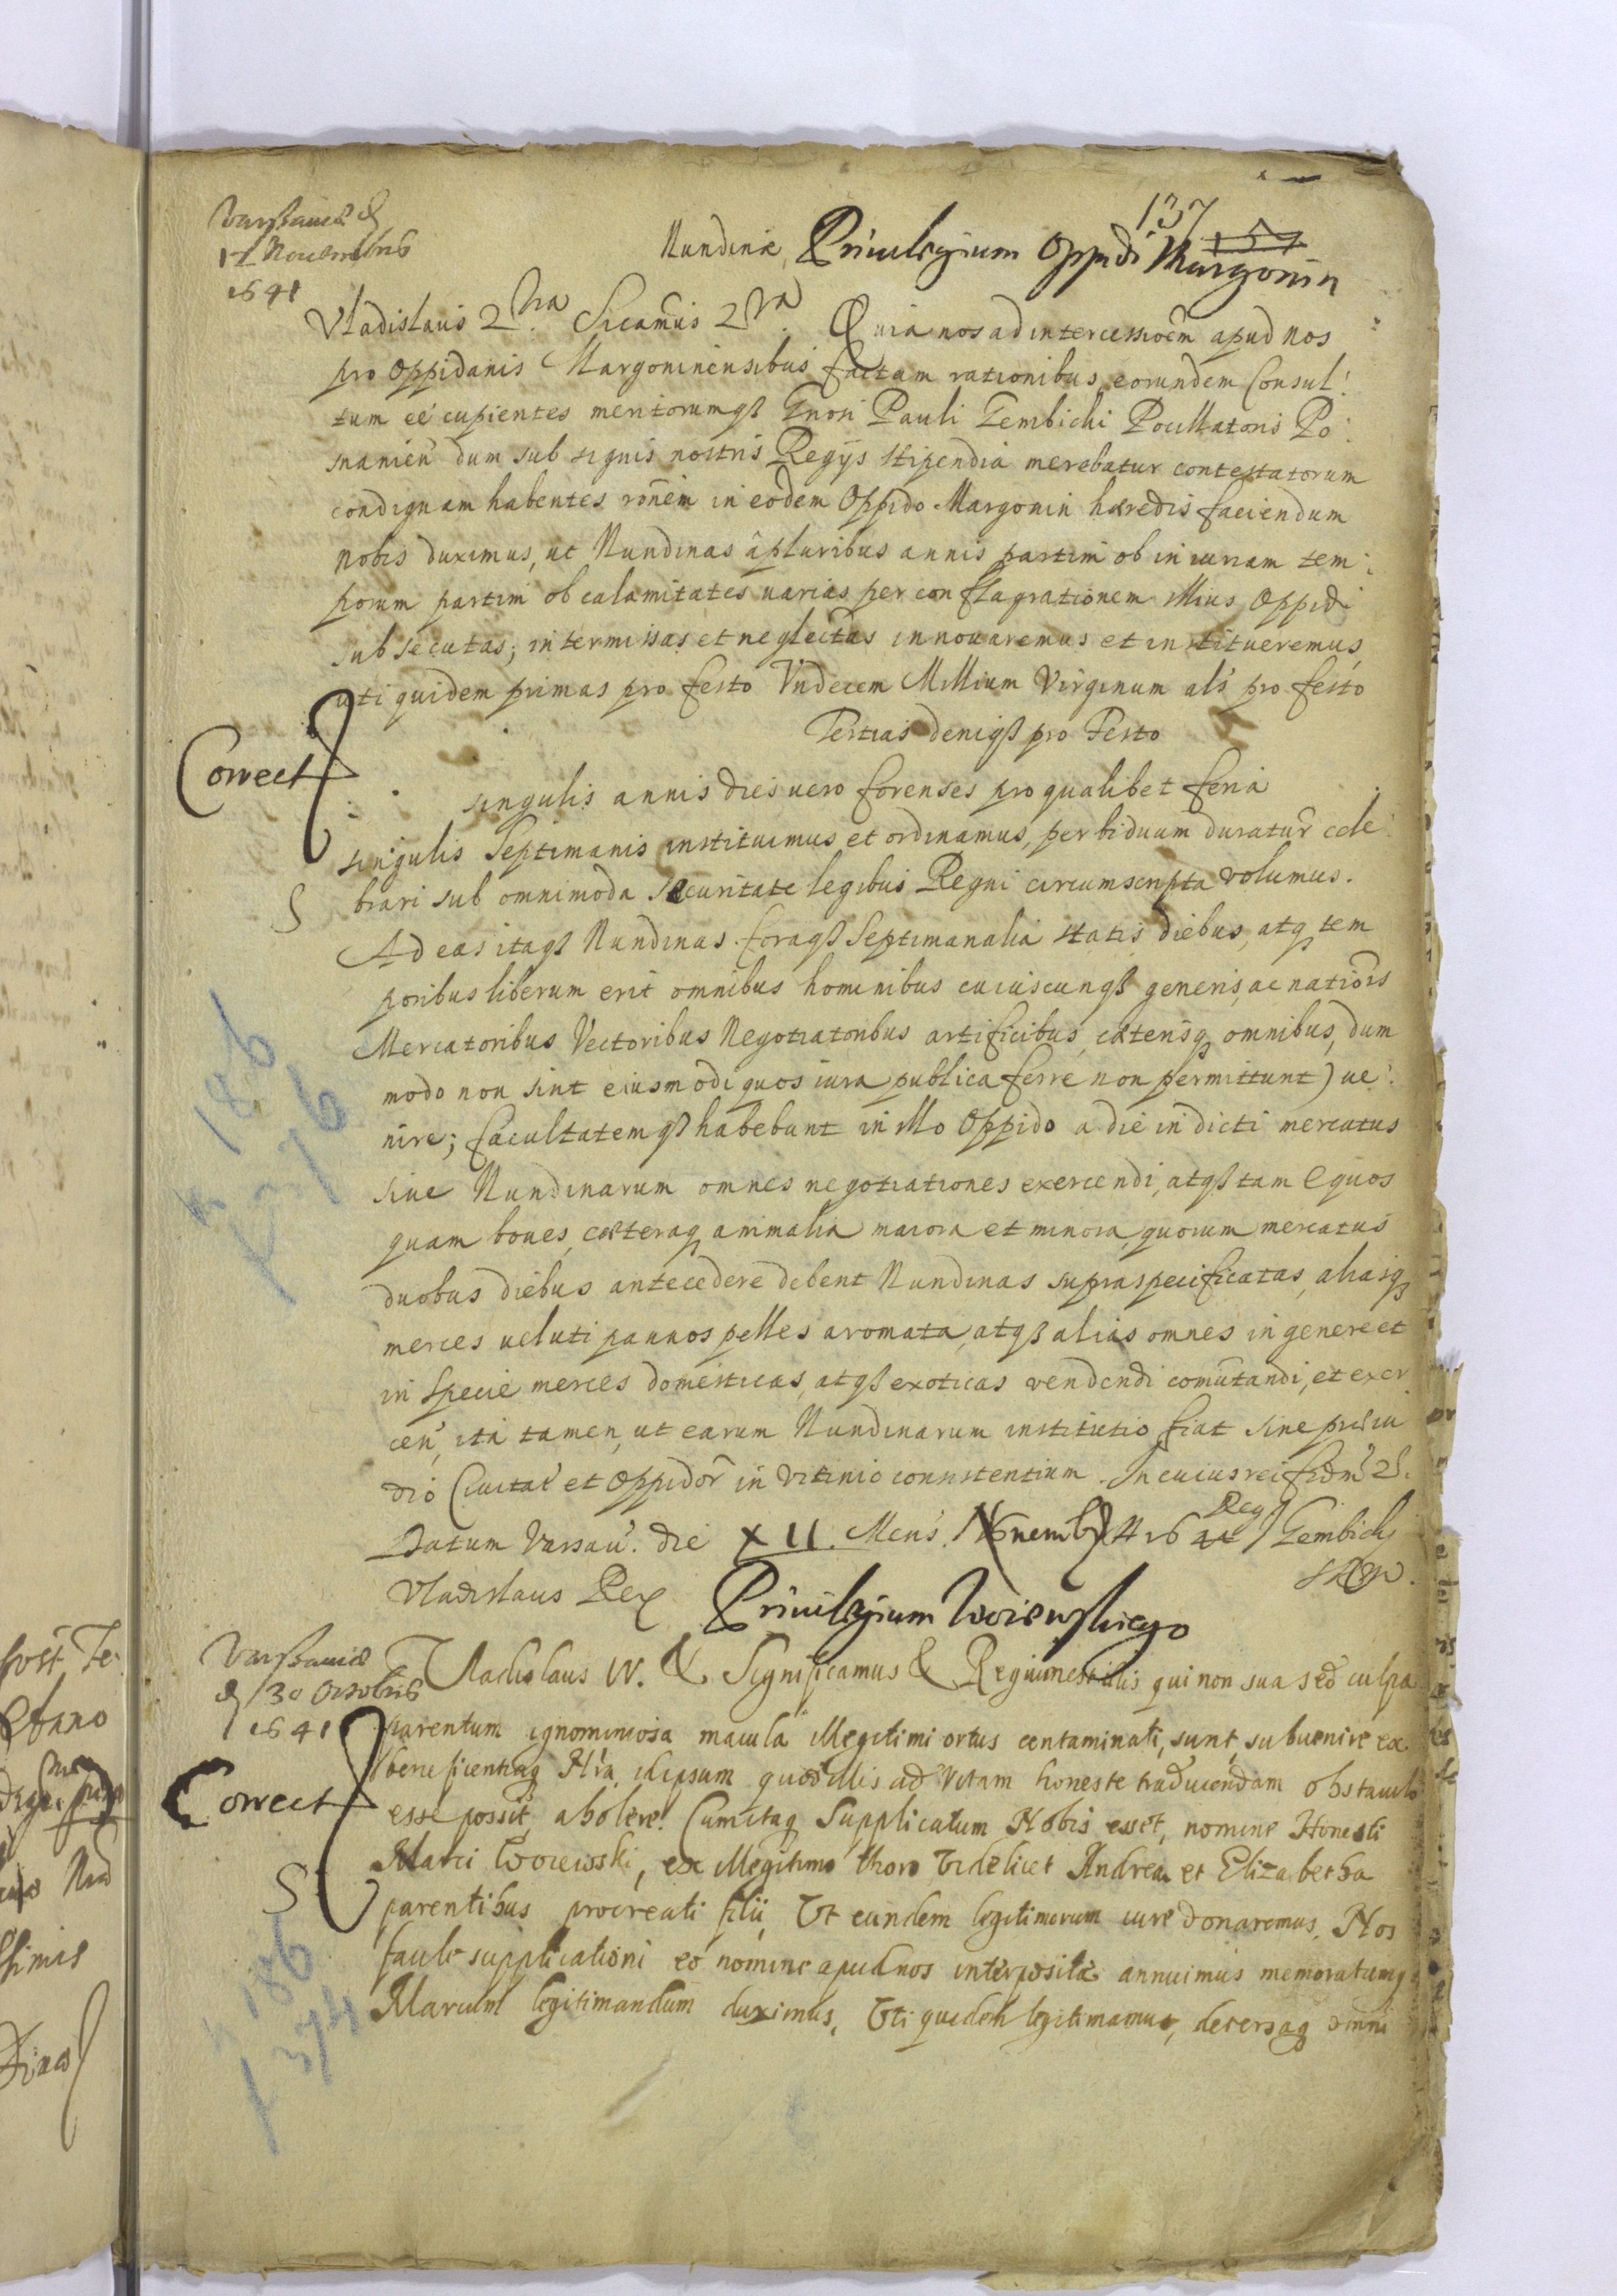 137
Varssaviæ d
12 Novembris
1641
Nundinæ, Privilegium Oppidi Margonin
Vladislaus 2 Sicamus 2 Quia nos ad intercessioem apud nos
pro Oppidanis Margoninensibus factam rationibus eorundem Consul:
tum ee cupientes meritorumqß Gnosi Pauli Gembicki Pocillatoris Po:
snanien dum sub signis nostris Regijs stipendia merebatur contestatorum
condignam habentes ronem in eodem Oppido Margonin hæredis faciendum
nobis duximus, ut Nundinas a pluribus annis partim ob iniuriam tem:
porum partim ob calamitates uarias per conflagrationem illius Oppidi
subsecutas; intermissas et neglectas innouaremus et institueremus,
uti quidem primas pro festo Undecem Millium Virginum als pro festo
Tertias deniqß pro Festo
Correct
singulis annis dies uero forenses pro qualibet feria
singulis Septimanis instituimus et ordinamus, per biduum duratur cele
brari sub omnimoda securitate legibus Regni circumscripta volumus.
S
Ad eas itaqß Nundinas foraqß Septimanalia statis diebus, atq tem
poribus liberum erit omnibus hominibus cuiuscunqß generis, ac nations
Mercatoribus Vectoribus Negotiatoribus artificibus, cæterisq omnibus, dum
modo non sint eiusmodi quos iura publica ferre non permittunt) ue:
nire; facultatemqß habebunt in illo Oppido a die indicti mercatus
siue Nundinarum omnes negotiationes exercendi, atqß tam Equos
quam boues, cæteraq animalia maiora et minora, quorum mercatus
duobus diebus antecedere debent Nundinas supraspecificatas, aliasqß
merces ueluti pannos pelles aromata, atqß alias omnes in genere et
in specie merces domesticas, atqß exoticas vendendi comutandi, et exer
cen, ita tamen, ut earum Nundinarum institutio fiat sine præiu
dio Ciuitat et Oppidor in vicinio consistentium. In cuius rei fidm 2.
Datum Varsau. die XII. Mens. Nouemb
Vladislaus Rex
186
376
Privilegium Woiewskiego
Varssaviæ
d 30 Octobris
1641
Vladislaus IV. & Significamus & Regium est illis qui non sua sed culpa
parentum ignominiosa macula illegitimi ortus contaminati, sunt, subuenire ex
beneficentiaq Nra idipsum quod illis ad vitam honeste traducendam obstaculo
Correct
esse possit abolere. Cum itaq Supplicatum Nobis esset, nomine Honesti
Marci Woiewski, ex illegitimo thoro videlicet Andrea et Elizabetha
S
parentibus procreati filii, Ut eundem legitimorum iure donaremus, Nos
facile supplicationi eo nomine apud nos interpositæ annuimus memoratumq
Marcum legitimandum duximus, Uti quidem legitimamus, detersaq omni
186
374